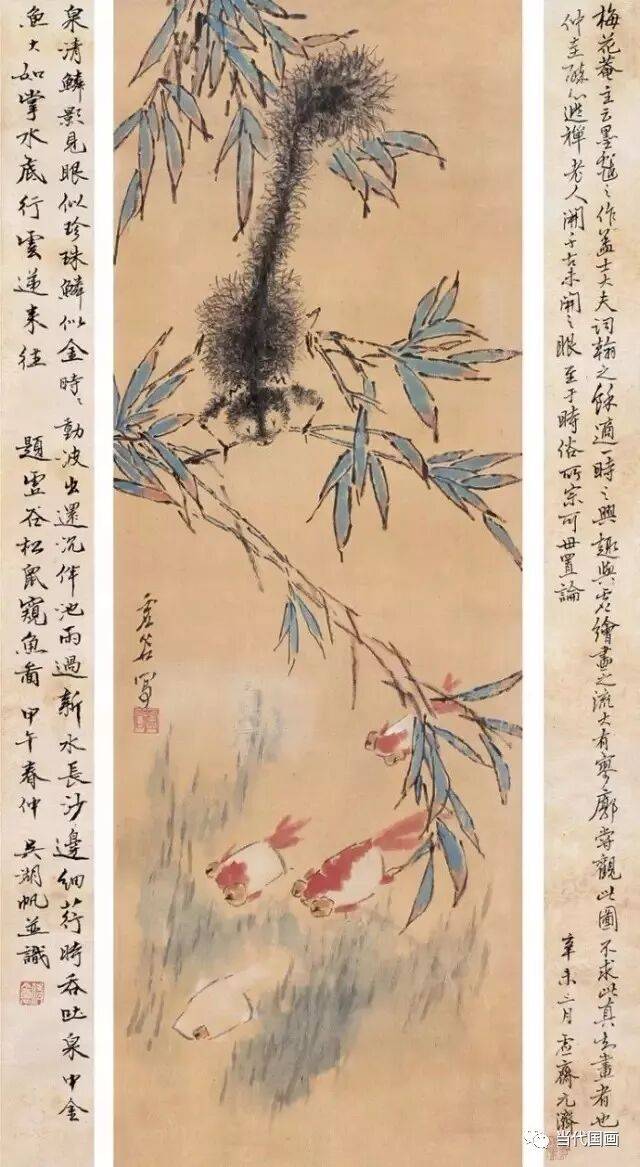 梅花菴主云墨戲之作蓋士大夫詞翰之餘適一時之興趣與夫繪畫之流大有寥廓嘗觀此圖不求此真畫者也
仲圭醉心逃禪老人開千古未開之眼至于時俗所宗可毋置論
辛未三月虛齋元濟
虛谷寫
泉清鱗影見眼似珍珠鱗似金時時動波出還沉伴池雨過新水長沙邊細荇時吞吐泉中金
魚大如掌水底行雲遞來往
題虛谷松鼠窺魚圖 甲午春仲 吳湖帆並識
当代国画